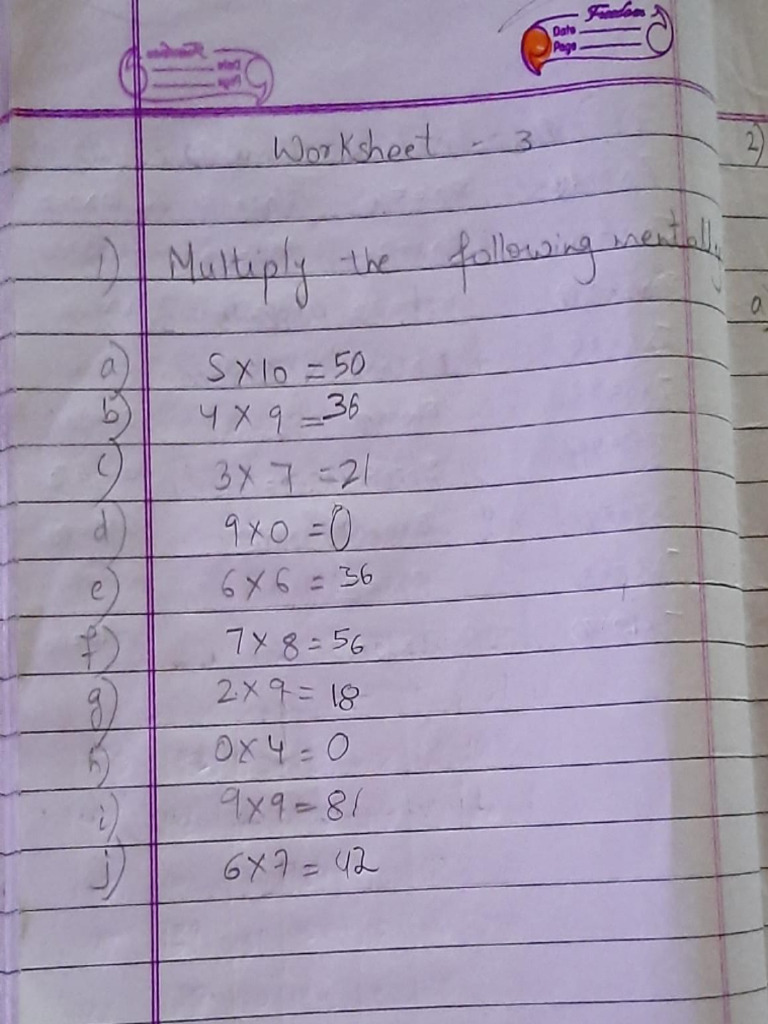 Freedom
Date
Page
Worksheet - 3
2)
1) Multiply the following mentally
a
a) 5 x 10 = 50
b) 4 x 9 = 36
c) 3 x 7 = 21
d) 9 x 0 = 0
e) 6 x 6 = 36
f) 7 x 8 = 56
g) 2 x 9 = 18
h) 0 x 4 = 0
i) 9 x 9 = 81
j) 6 x 7 = 42